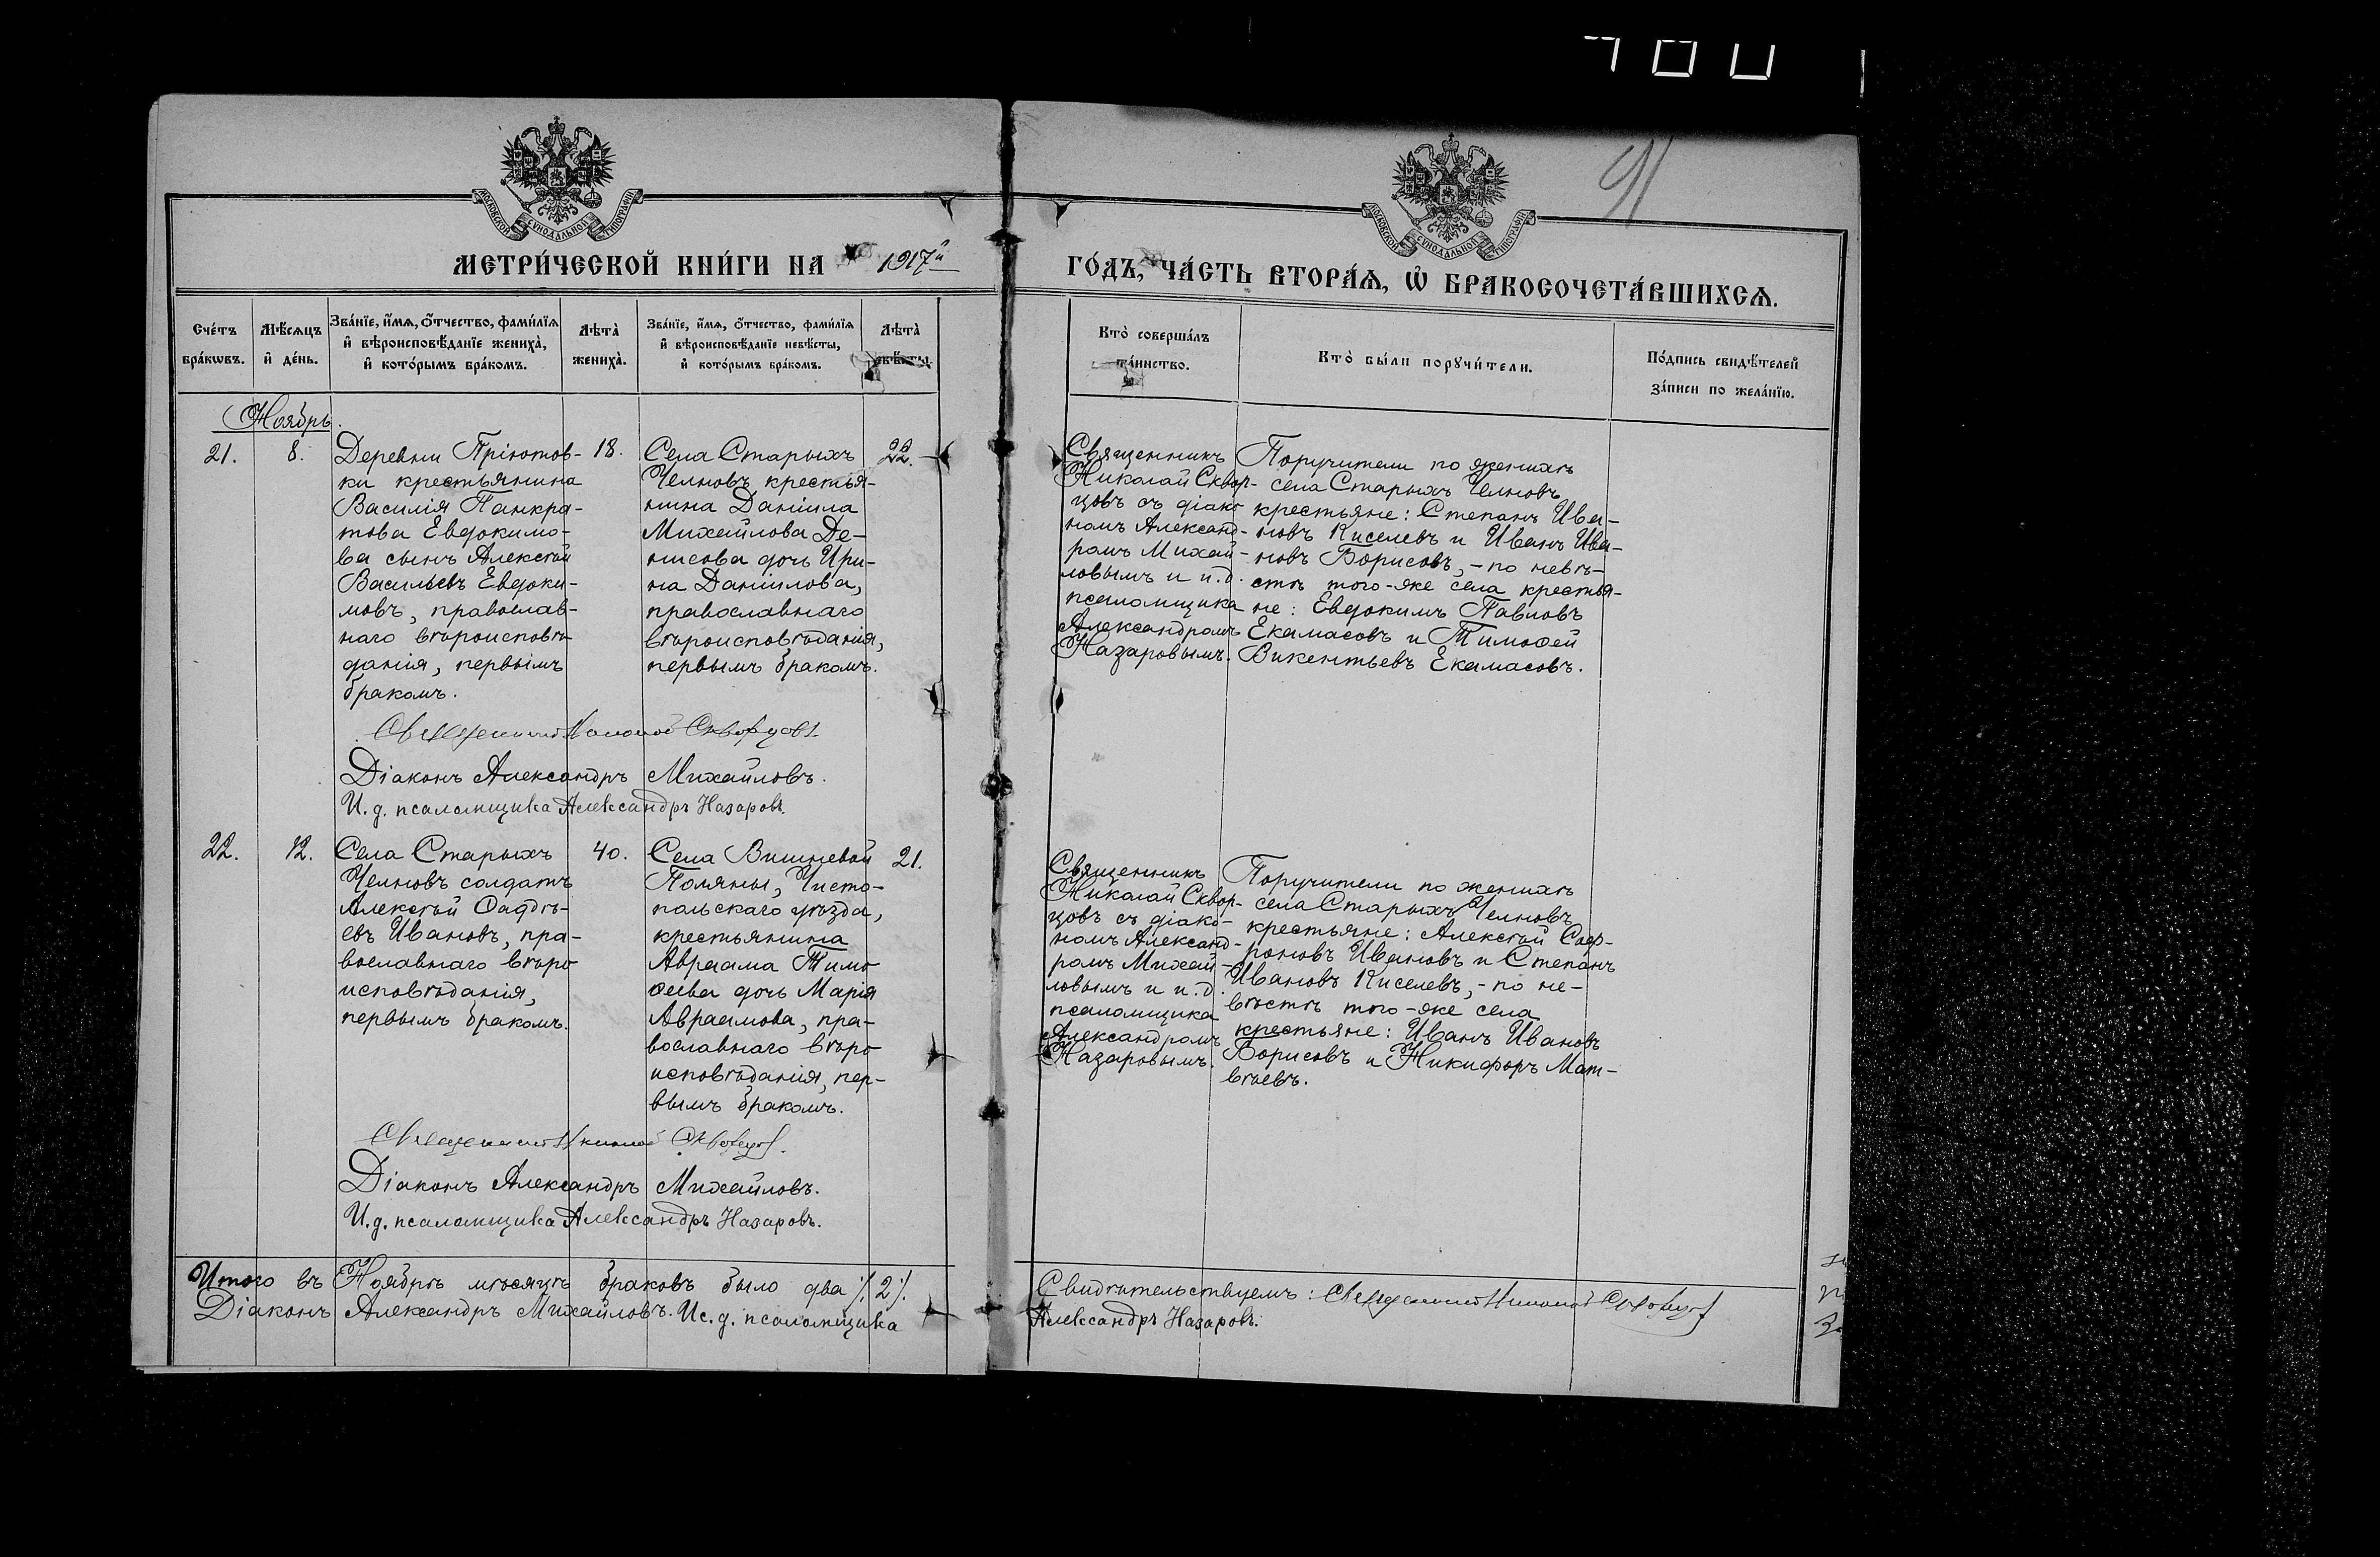 91
МОСКОВСКОЙ СѴНОДАЛЬНОЙ ТИПОГРАФІИ
МОСКОВСКОЙ СѴНОДАЛЬНОЙ ТИПОГРАФІИ
МЕТРИ́ЧЕСКОЙ КНИ́ГИ НА 1917й ГО́ДЪ, ЧА́СТЬ ВТОРА́Ѧ, Ѡ҆ БРАКОСОЧЕТА́ВШИХСѦ.
Сче́тъ
бра́кѡвъ.
Мѣ́сѧцъ
и҆ де́нь.
Зва́нїе, и҆́мѧ, ѻ҆́тчество, фами́лїѧ
и҆ вѣроисповѣ́данїе жениха̀,
и҆ кото́рымъ бра́комъ.
Лѣта̀
жениха̀.
Зва́нїе, и҆́мѧ, ѻ҆́тчество, фами́лїѧ
и҆ вѣроисповѣ́данїе невѣ́сты,
и҆ кото́рымъ бра́комъ.
Лѣта̀
невѣ́сты.
Кто̀ соверша́лъ
та́инство.
Кто̀ бы́ли порꙋчи́тели.
По́дпись свидѣ́телей
за́писи по жела́нїю.
Ноябрь.
21.
8.
Деревни Пріютов-
ки крестьянина
Василія Панкра-
това Евдокимо-
ва сынъ Алексѣй
Васильевъ Евдоки-
мовъ, православ-
наго вѣроисповѣ-
данія, первымъ
бракомъ.
18.
Села Старыхъ
Челновъ крестья-
нина Даніила
Михайлова Де-
нисова дочь Ири-
на Даніилова,
православнаго
вѣроисповѣданія,
первымъ бракомъ.
22.
Священникъ
Николай Сквор-
цовъ съ діако-
номъ Александ-
ромъ Михай-
ловымъ и и.д.
псаломщика
Александромъ
Назаровымъ.
Поручители по женихѣ
села Старыхъ Челновъ
крестьяне: Степанъ Ива-
новъ Киселевъ и Иванъ Ива-
новъ Борисовъ, - по невѣ-
стѣ того-же села крестья-
не: Евдокимъ Павловъ
Екамасовъ и Тимофей
Викентьевъ Екамасовъ.
Священникъ Николай Скворцовъ
Діаконъ Александръ Михайловъ.
И.д. псаломщика Александръ Назаровъ.
22.
12.
Села Старыхъ
Челновъ солдатъ
Алексѣй Ѳаддѣ-
евъ Ивановъ, пра-
вославнаго вѣро
исповѣданія,
первымъ бракомъ.
40.
Села Вишневой
Поляны, Чисто-
польскаго уѣзда,
крестьянина
Авраама Тимо
ѳеева дочь Марія
Авраамова, пра-
вославнаго вѣро
исповѣданія, пер-
вымъ бракомъ.
21.
Священникъ
Николай Сквор-
цовъ съ діако-
номъ Александ-
ромъ Михай-
ловымъ и и.д.
псаломщика
Александромъ
Назаровымъ.
Поручители по женихѣ
села Старыхъ Челновъ
крестьяне: Алексѣй Соф-
роновъ Ивановъ и Степанъ
Ивановъ Киселевъ, - по не-
вѣстѣ того-же села
крестьяне: Иванъ Ивановъ
Борисовъ и Никифоръ Мат-
вѣевъ.
Священникъ Николай Скворцовъ.
Діаконъ Александръ Михайловъ.
И.д. псаломщика Александръ Назаровъ.
Итого въ Ноябрѣ мѣсяцѣ браковъ было два /2/. Свидѣтельствуемъ: Священникъ Николай Скворцовъ
Діаконъ Александръ Михайловъ. Ис.д. псаломщика Александръ Назаровъ.